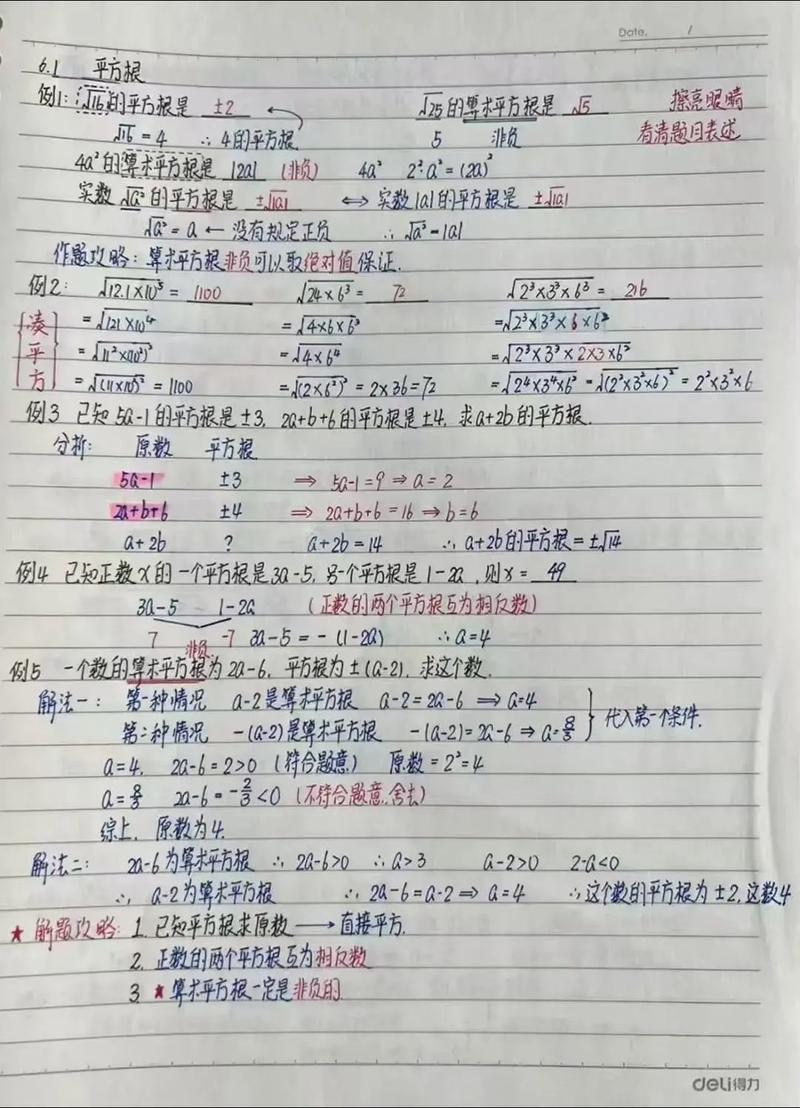 Date. /
6.1 平方根
例1: √16的平方根是 ±2 √25的算术平方根是 √5 擦亮眼睛
√16 = 4 ∴ 4的平方根 5 非负 看清题目表述
4a²的算术平方根是 |2a| (非负) 4a² 2²·a² = (2a)²
实数√a²的平方根是 ±√|a| ⇔ 实数|a|的平方根是 ±√|a|
√a² = a ← 没有规定正负 ∴ √a² = |a|
作题攻略: 算术平方根非负可以取绝对值保证.
例2: √12.1×10⁵ = 1100 √24×6³ = 72 √2³×3³×6³ = 216
凑平方
= √121×10⁴ = √4×6×6³ = √2³×3³×6×6²
= √11²×(10²)² = √4×6⁴ = √2³×3³×2×3×6²
= √(11×10²)² = 1100 = √(2×6²)² = 2×36 = 72 = √2⁴×3⁴×6² = √(2²×3²×6)² = 2²×3²×6
例3 已知5a-1的平方根是±3, 2a+b+6的平方根是±4, 求a+2b的平方根.
分析: 原数 平方根
5a-1 ±3 ⇒ 5a-1=9 ⇒ a=2
2a+b+6 ±4 ⇒ 2a+b+6=16 → b=6
a+2b ? a+2b=14 ∴ a+2b的平方根=±√14
例4 已知正数x的一个平方根是3a-5, 另一个平方根是1-2a, 则x= 49
3a-5 1-2a (正数的两个平方根互为相反数)
7 -7 3a-5 = -(1-2a) ∴ a=4
非负
例5 一个数的算术平方根为2a-6, 平方根为±(a-2), 求这个数.
解法一: 第一种情况 a-2是算术平方根 a-2=2a-6 ⇒ a=4
第二种情况 -(a-2)是算术平方根 -(a-2)=2a-6 ⇒ a=8/3 } 代入第一个条件.
a=4, 2a-6=2>0 (符合题意) 原数=2²=4
a=8/3 2a-6=-2/3<0 (不符合题意, 舍去)
综上, 原数为4.
解法二: 2a-6为算术平方根 ∴ 2a-6>0 ∴ a>3 a-2>0 2-a<0
∴ a-2为算术平方根 ∴ 2a-6=a-2 ⇒ a=4 ∴ 这个数的平方根为±2, 这数4
★ 解题攻略: 1. 已知平方根求原数 → 直接平方.
2. 正数的两个平方根互为相反数
3 ★ 算术平方根一定是非负的
deli得力